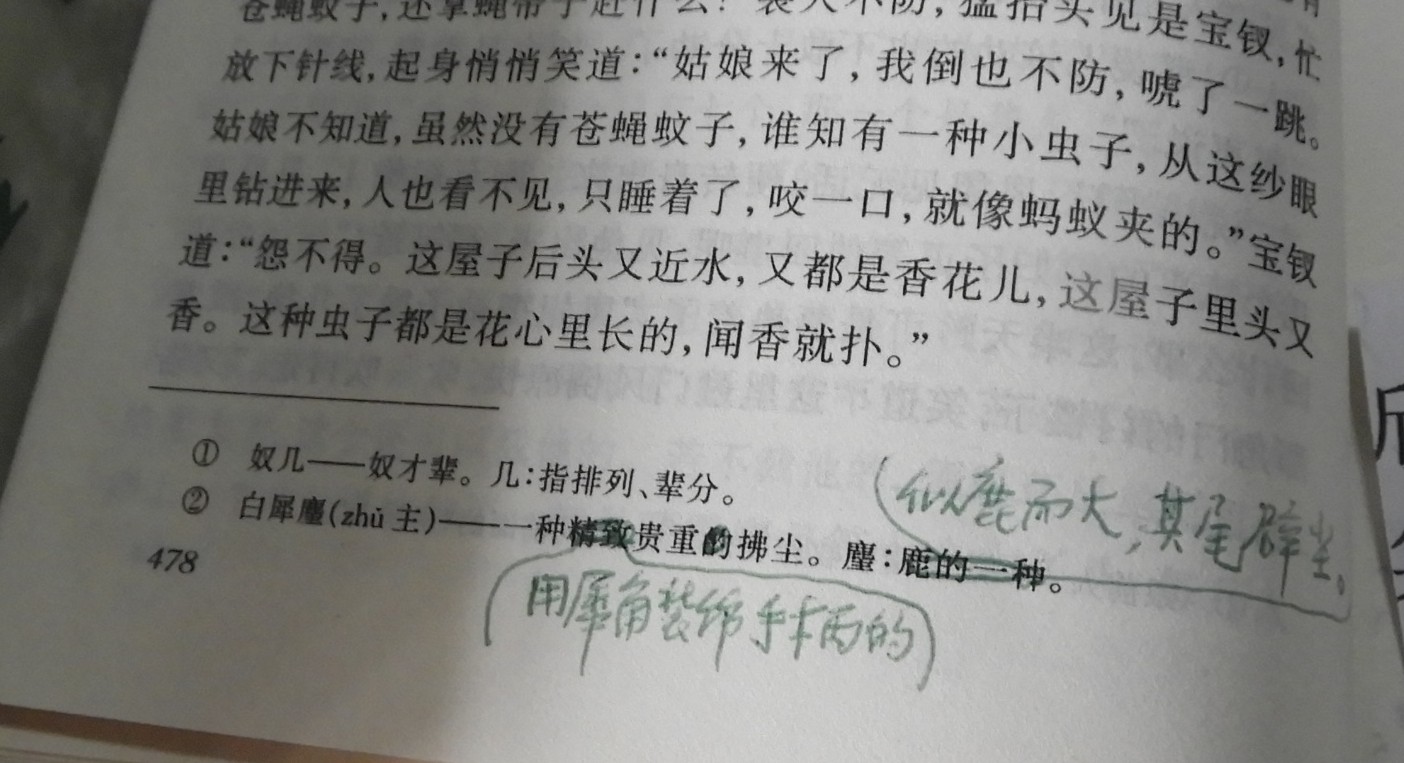 苍蝇蚊子,还拿蝇帚子赶什么?”袭人不防,猛抬头见是宝钗,忙
放下针线,起身悄悄笑道:“姑娘来了,我倒也不防,唬了一跳。
姑娘不知道,虽然没有苍蝇蚊子,谁知有一种小虫子,从这纱眼
里钻进来,人也看不见,只睡着了,咬一口,就像蚂蚁夹的。”宝钗
道:“怨不得。这屋子后头又近水,又都是香花儿,这屋子里头又
香。这种虫子都是花心里长的,闻香就扑。”
① 奴几——奴才辈。几:指排列、辈分。
似鹿而大,其尾辟尘。
② 白犀麈(zhǔ 主)——一种精致贵重的拂尘。麈:鹿的一种。
478
用犀角装饰手柄的